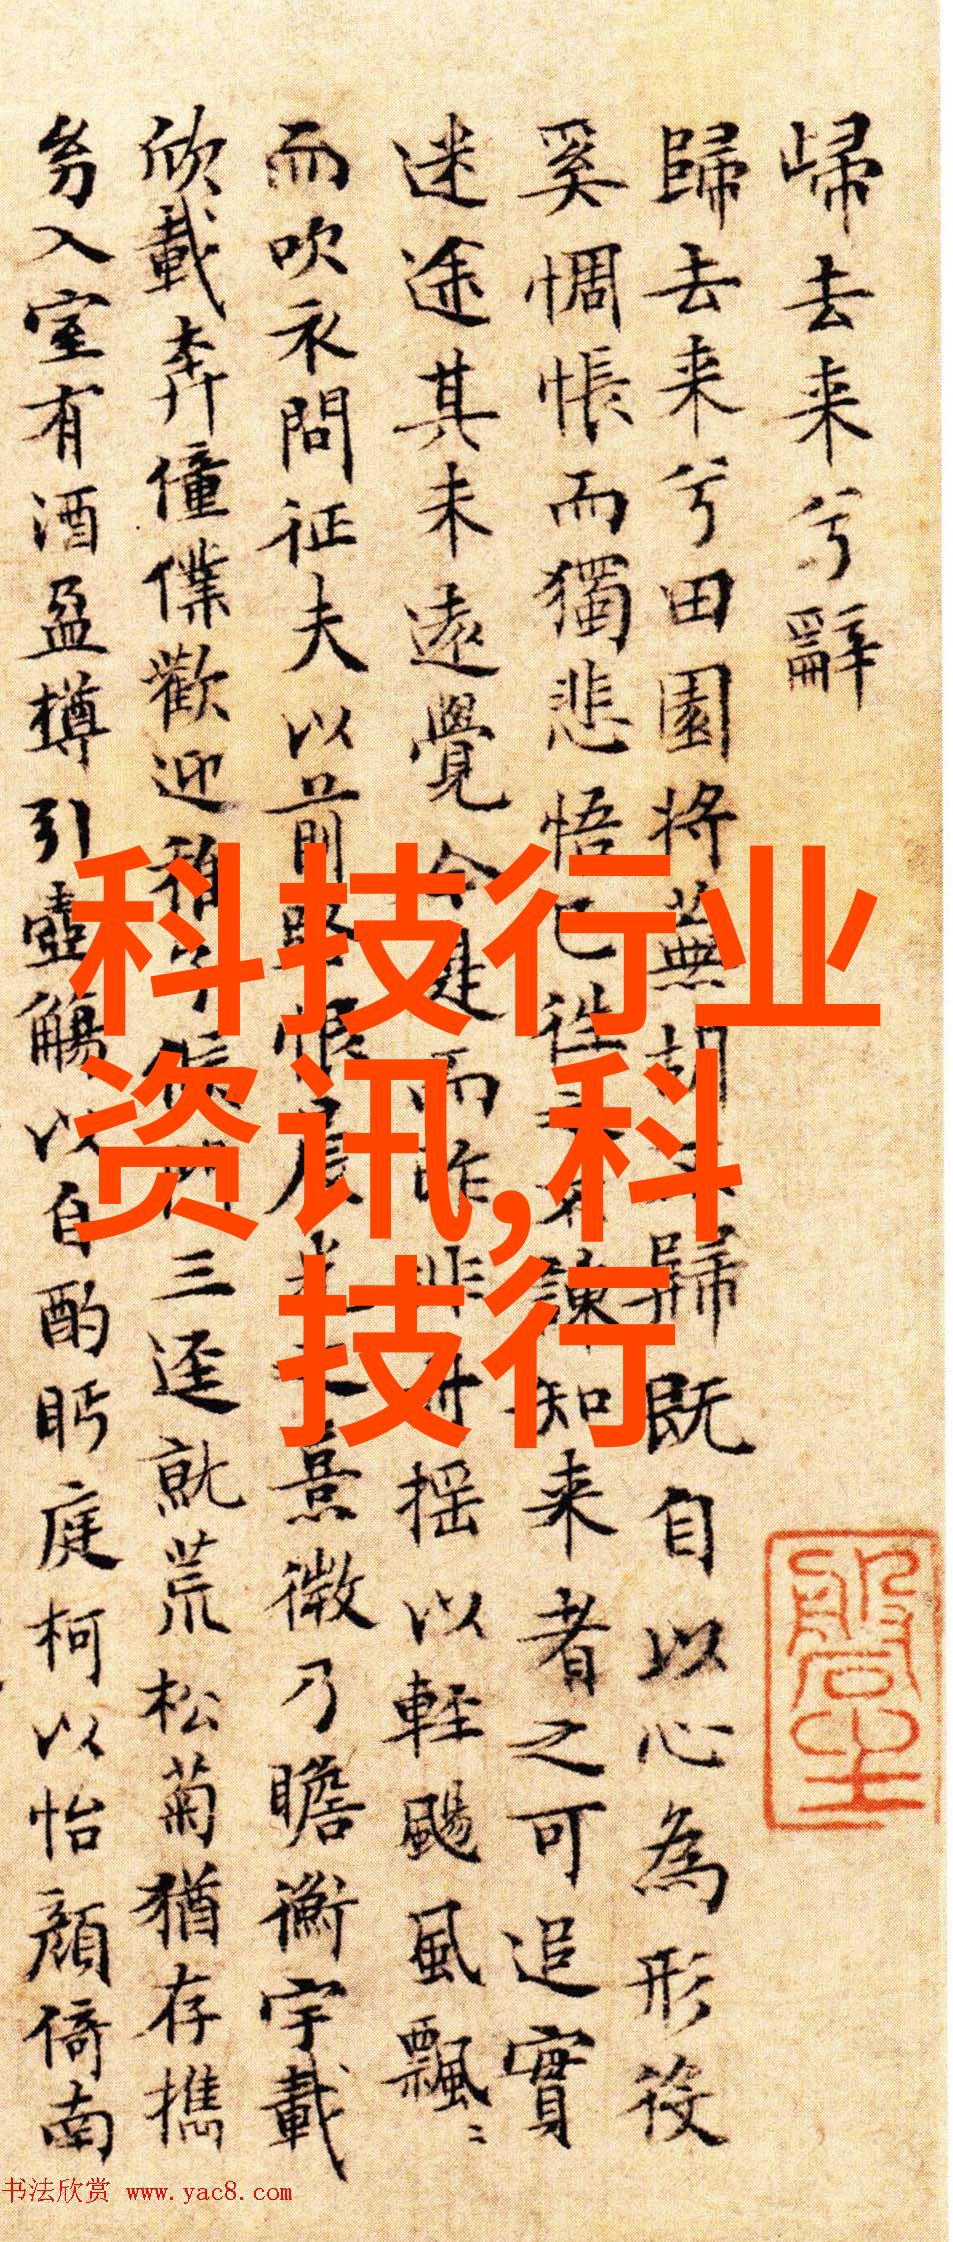 歸去来兮辭
歸去来兮田園将蕪胡不歸既自以心為形役
奚惆悵而獨悲悟已往之不諫知来者之可追實
迷途其未遠覺今是而昨非舟揺以輕颺風飄〻
而吹衣問征夫以前路恨晨光之熹微乃瞻衡宇載
欣載奔僮僕歡迎稚子候門三逕就荒松菊猶存攜
幼入室有酒盈樽引壺觴以自酌眄庭柯以怡顔倚南
科技行业
资讯,科
技行
书法欣赏 www.yac8.com